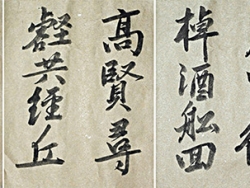 棹酒舩回
高賢尋
壑共經丘